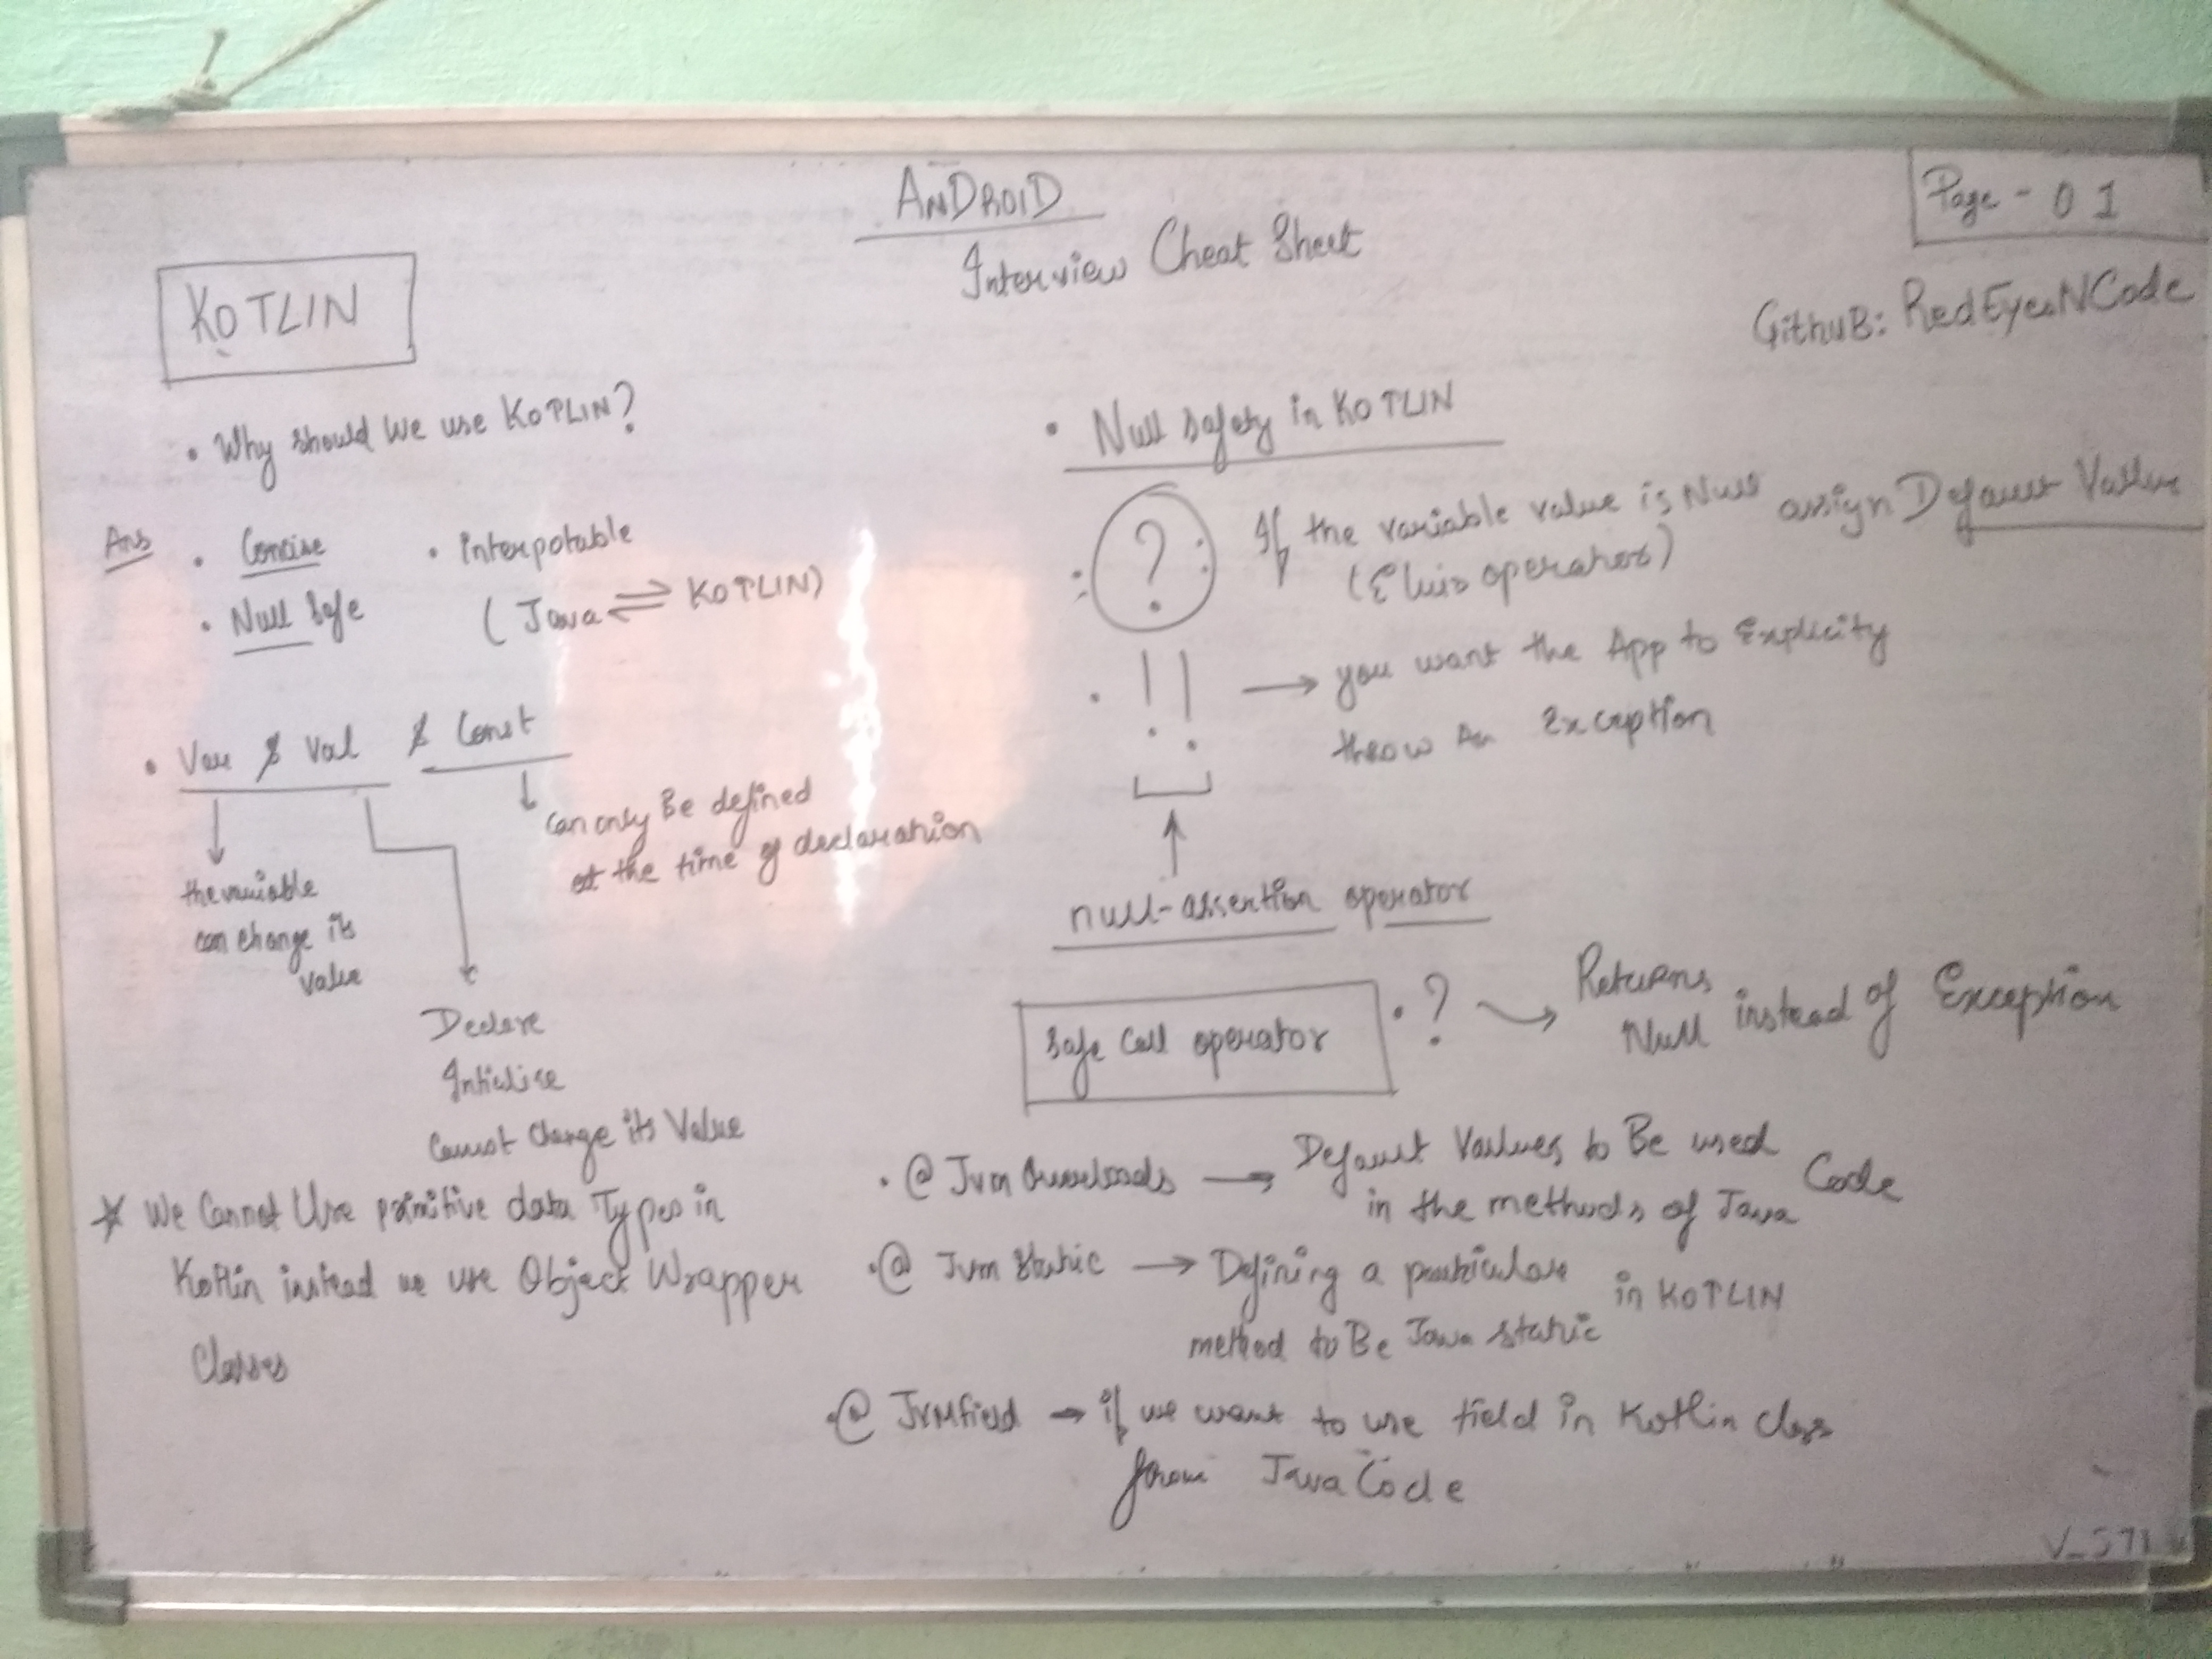 ANDROID
Interview Cheat Sheet
Page - 01
GithuB: RedEyesNCode
KOTLIN
• Why should We use KOTLIN?
Ans • Concise • interpotable
• Null Safe ( Java ⇌ KOTLIN)
• Var & Val & Const
the variable
can change its
value
Declare
Intialise
Cannot Change its Value
can only Be defined
at the time of declaration
* We Cannot Use primitive data Types in
Kotlin instead we use Object Wrapper
Classes
• Null safety in KOTLIN
? : If the variable value is Null assign Default Value
(Elvis operator)
• !! → you want the App to Explicity
throw An Exception
null-assertion operator
Safe Call operator .? → Returns
Null instead of Exception
• @ Jvm Overloads → Default Values to Be used
in the methods of Java Code
• @ Jvm Static → Defining a particular
method to Be Java static in KOTLIN
• @ JvMfield → if we want to use field in Kotlin class
from Java Code
V_571